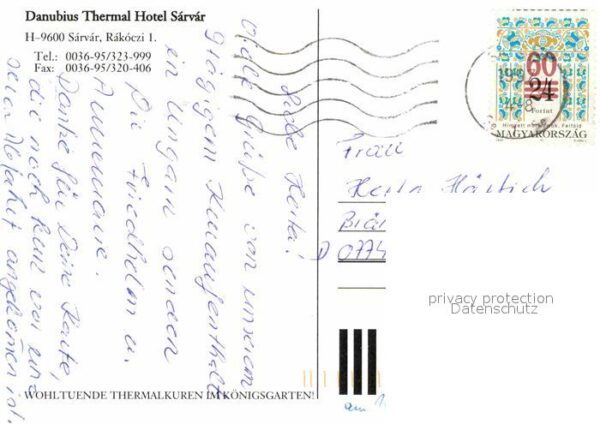 Danubius Thermal Hotel Sárvár
H–9600 Sárvár, Rákóczi 1.
Tel.: 0036-95/323-999
Fax: 0036-95/320-406
Liebe Herta!
Viele Grüße von unserem
Kuraufenthalt
in Ungarn senden
Dir Friedhelm u.
Annemarie.
Danke für Deine Karte,
die noch kurz vor uns
angekommen ist.
60
24
Forint
MAGYARORSZÁG
Frau
Herta
D 0774
privacy protection
Datenschutz
WOHLTUENDE THERMALKUREN IM KÖNIGSGARTEN!